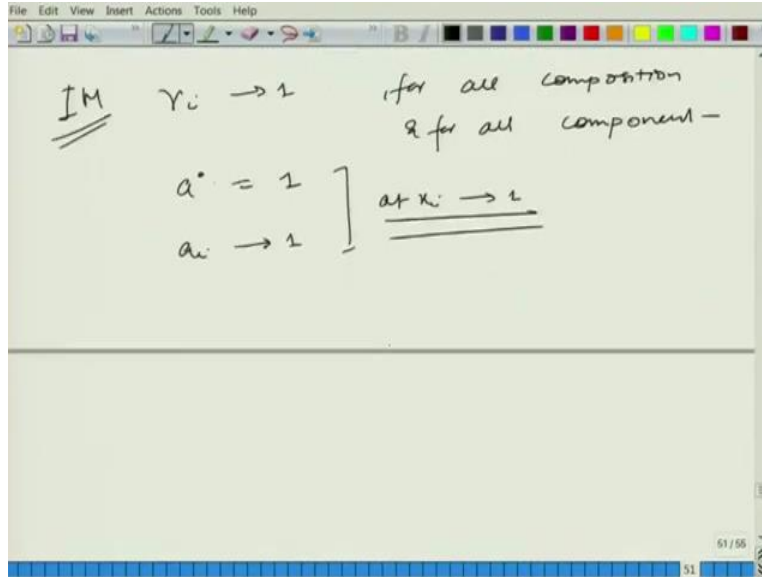 File Edit View Insert Actions Tools Help
B I
IM γi → 1 , for all composition
& for all component –
a° = 1
ai → 1
at xi → 1
51/55
51